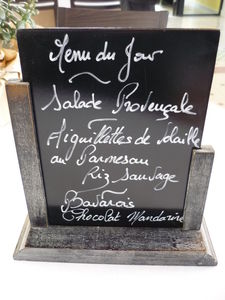 Menu du Jour
Salade Provençale
Aiguillettes de Volaille
au Parmesan
Riz Sauvage
Bavarois
Chocolat Mandarine